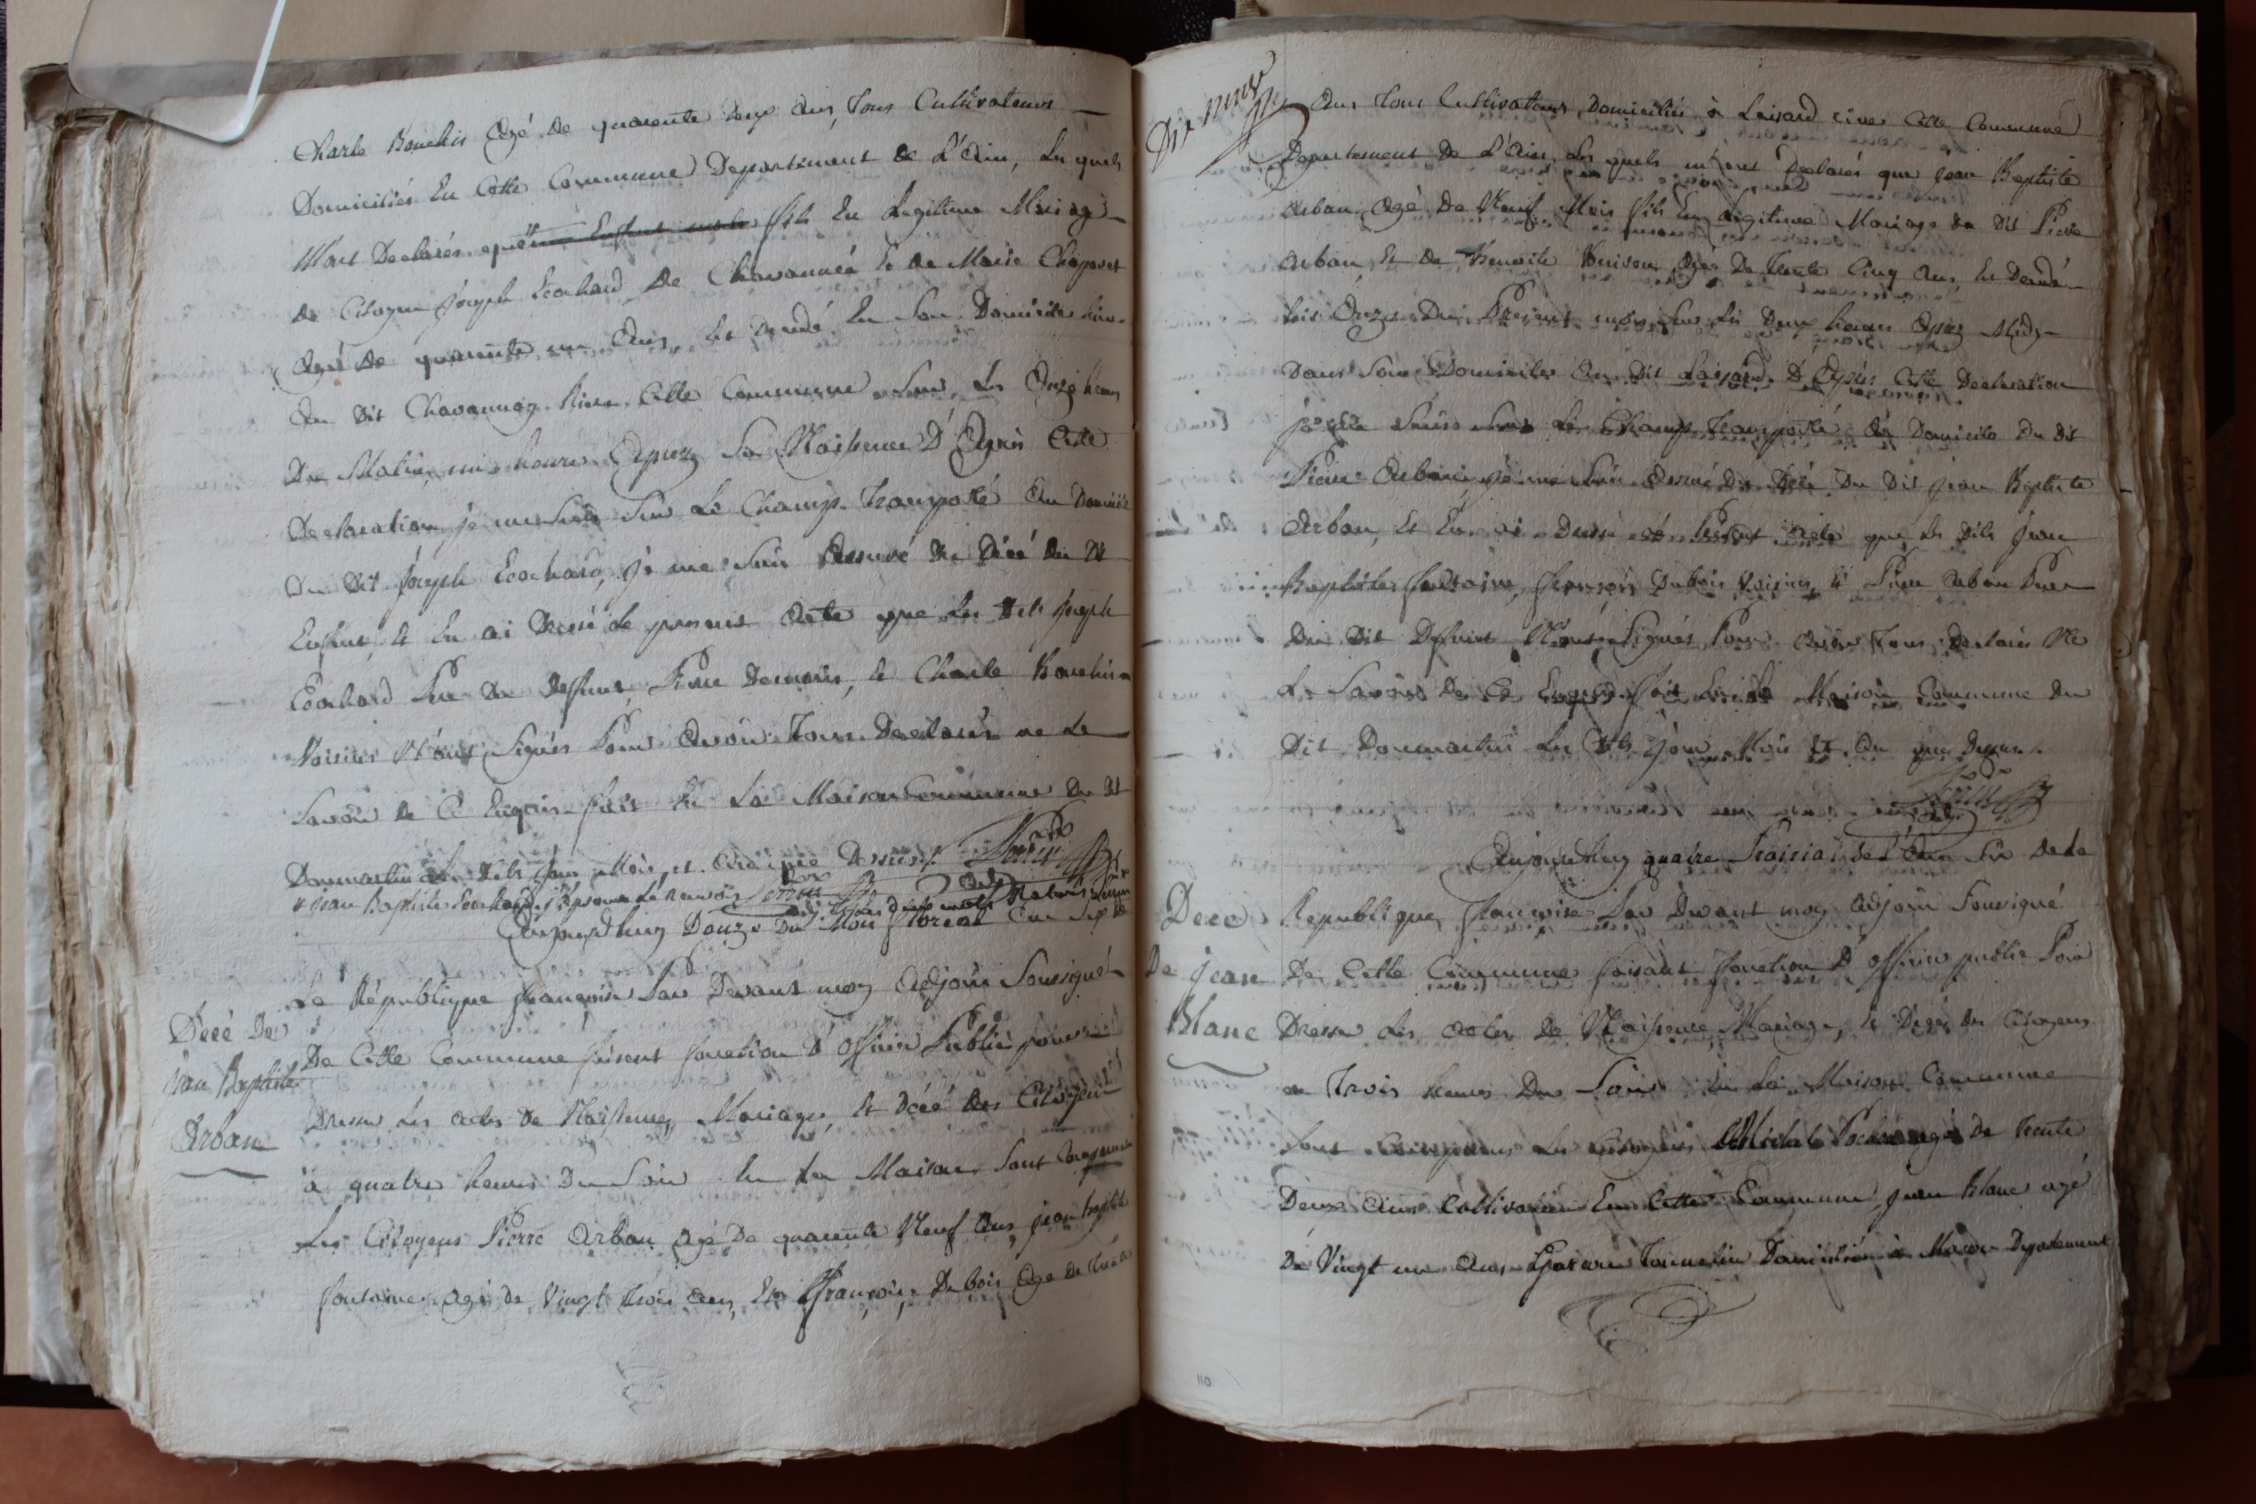 Charle Bouchis Agé de quarente deux Ans, tous Cultivateurs
Domiciliés En Cette Commune Departement de L'Ain, Les quels
Mont Declarés que un Enfant male fils En Legitime Mariage
de Citoyen Joseph Cochard De Chavannée et de Marie Chaponet
Agé de quarente un Ans, Et Decedé En Son Domicile
Au dit Chavannay Riere Cette Commune Sur Les Onze heures
Du Matin, une heure Apres Sa Naissence D'Apres Cette
Declaration je me Suis Sur Le Champ Transporté Au Domicile
Du Dit Joseph Cochard, Je me Suis Assuré du Décé du Dit
Enfant, et En ai Dressé le present Acte que Les dits Joseph
Cochard Pere du Deffunt, Pierre et Charle Bouchis
Voisins N'ont Signés Pour Avoir Tous Declarés ne Le
Savoir de Ce Enquis fait En La Maison Commune Du dit
Donmartin Les dits Jour Mois, et An que Dessus
jean Baptiste Cochard, j'approuve Le Renvois
Aujourdhuy Douze Du Mois floreal An Six de
La République françoise Par Devant moy Adjoin Sousigné
Décé De
jean Baptiste
Arban
De Cette Commune faisent fonction D'Officier Public pour
Dresser Les actes de Naissence, Mariage, et décé des Citoyens
à quatre heures Du Soir En La Maison Sont Comparus
Les Citoyens Pierre Arban Agé De quarente Neuf Ans, jean baptiste
fontaine Agé de Vingt trois Ans, Et François Dubois Age de trente
Dix neuf
Ans tous Cultivateurs Domiciliés à Loisard riere Cette Commune
Departement De L'Ain, Les quels m'ont Declarés que jean Baptiste
Arban Agé De Neuf Mois fils En Legitime Mariage du Dit Pierre
Arban Et de Benoite Agée De Trente Cinq Ans, Et Decedé
Onze Du Present mois Sur Les Deux heures Apres Midy
Dans Son Domicile Au Dit Loisard D'Apres Cette Declaration
je me Suis Sur Le Champ Transporté Au Domicile Du dit
Pierre Arban, je me Suis Assuré du Décé Du Dit jean Baptiste
Arban, et En ai Dressé le Present Acte que Les Dits jean
Baptiste fontaine, françois Dubois Voisins, et Pierre Arban Pere
Du Dit Defunt N'ont Signés Pour Avoir Tous Declarés Ne
Le Savoir De Ce Enquis fait En La Maison Commune Du
Dit Donmartin Les dits Jour Mois Et An que Dessus
Aujourdhuy quatre Prairial de L'An Six De La
Dece
De jean
Blanc
Republique françoise Par Devant moy Adjoin Sousigné
De Cette Commune faisant fonction D'Officier public Pour
Dresser Les Actes De Naissence, Mariage, et Décé des Citoyens
a Trois heures Du Soir En La Maison Commune
Sont Comparus Les Citoyens agé de trente
Deux Ans Cultivateur En Cette Commune, jean Blanc agé
De Vingt un Ans Tonnelier Domicilié à Macon Departement
110